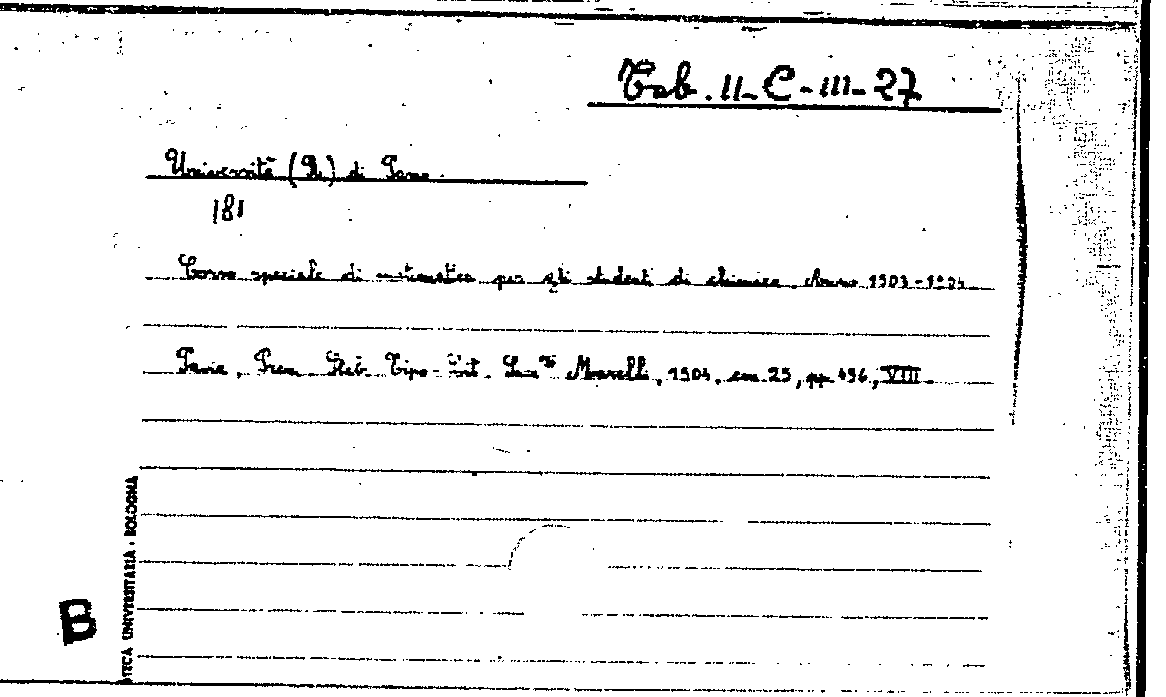 Tab. II-C-III-27
Università (R.) di Pavia
181
Corso speciale di matematica per gli studenti di chimica. Anno 1903-1904
Pavia, Prem. Stab. Tipo-Lit. Succ.ri Marelli, 1904, cm. 25, pp. 496, VIII.
B
TECA UNIVERSITARIA - BOLOGNA